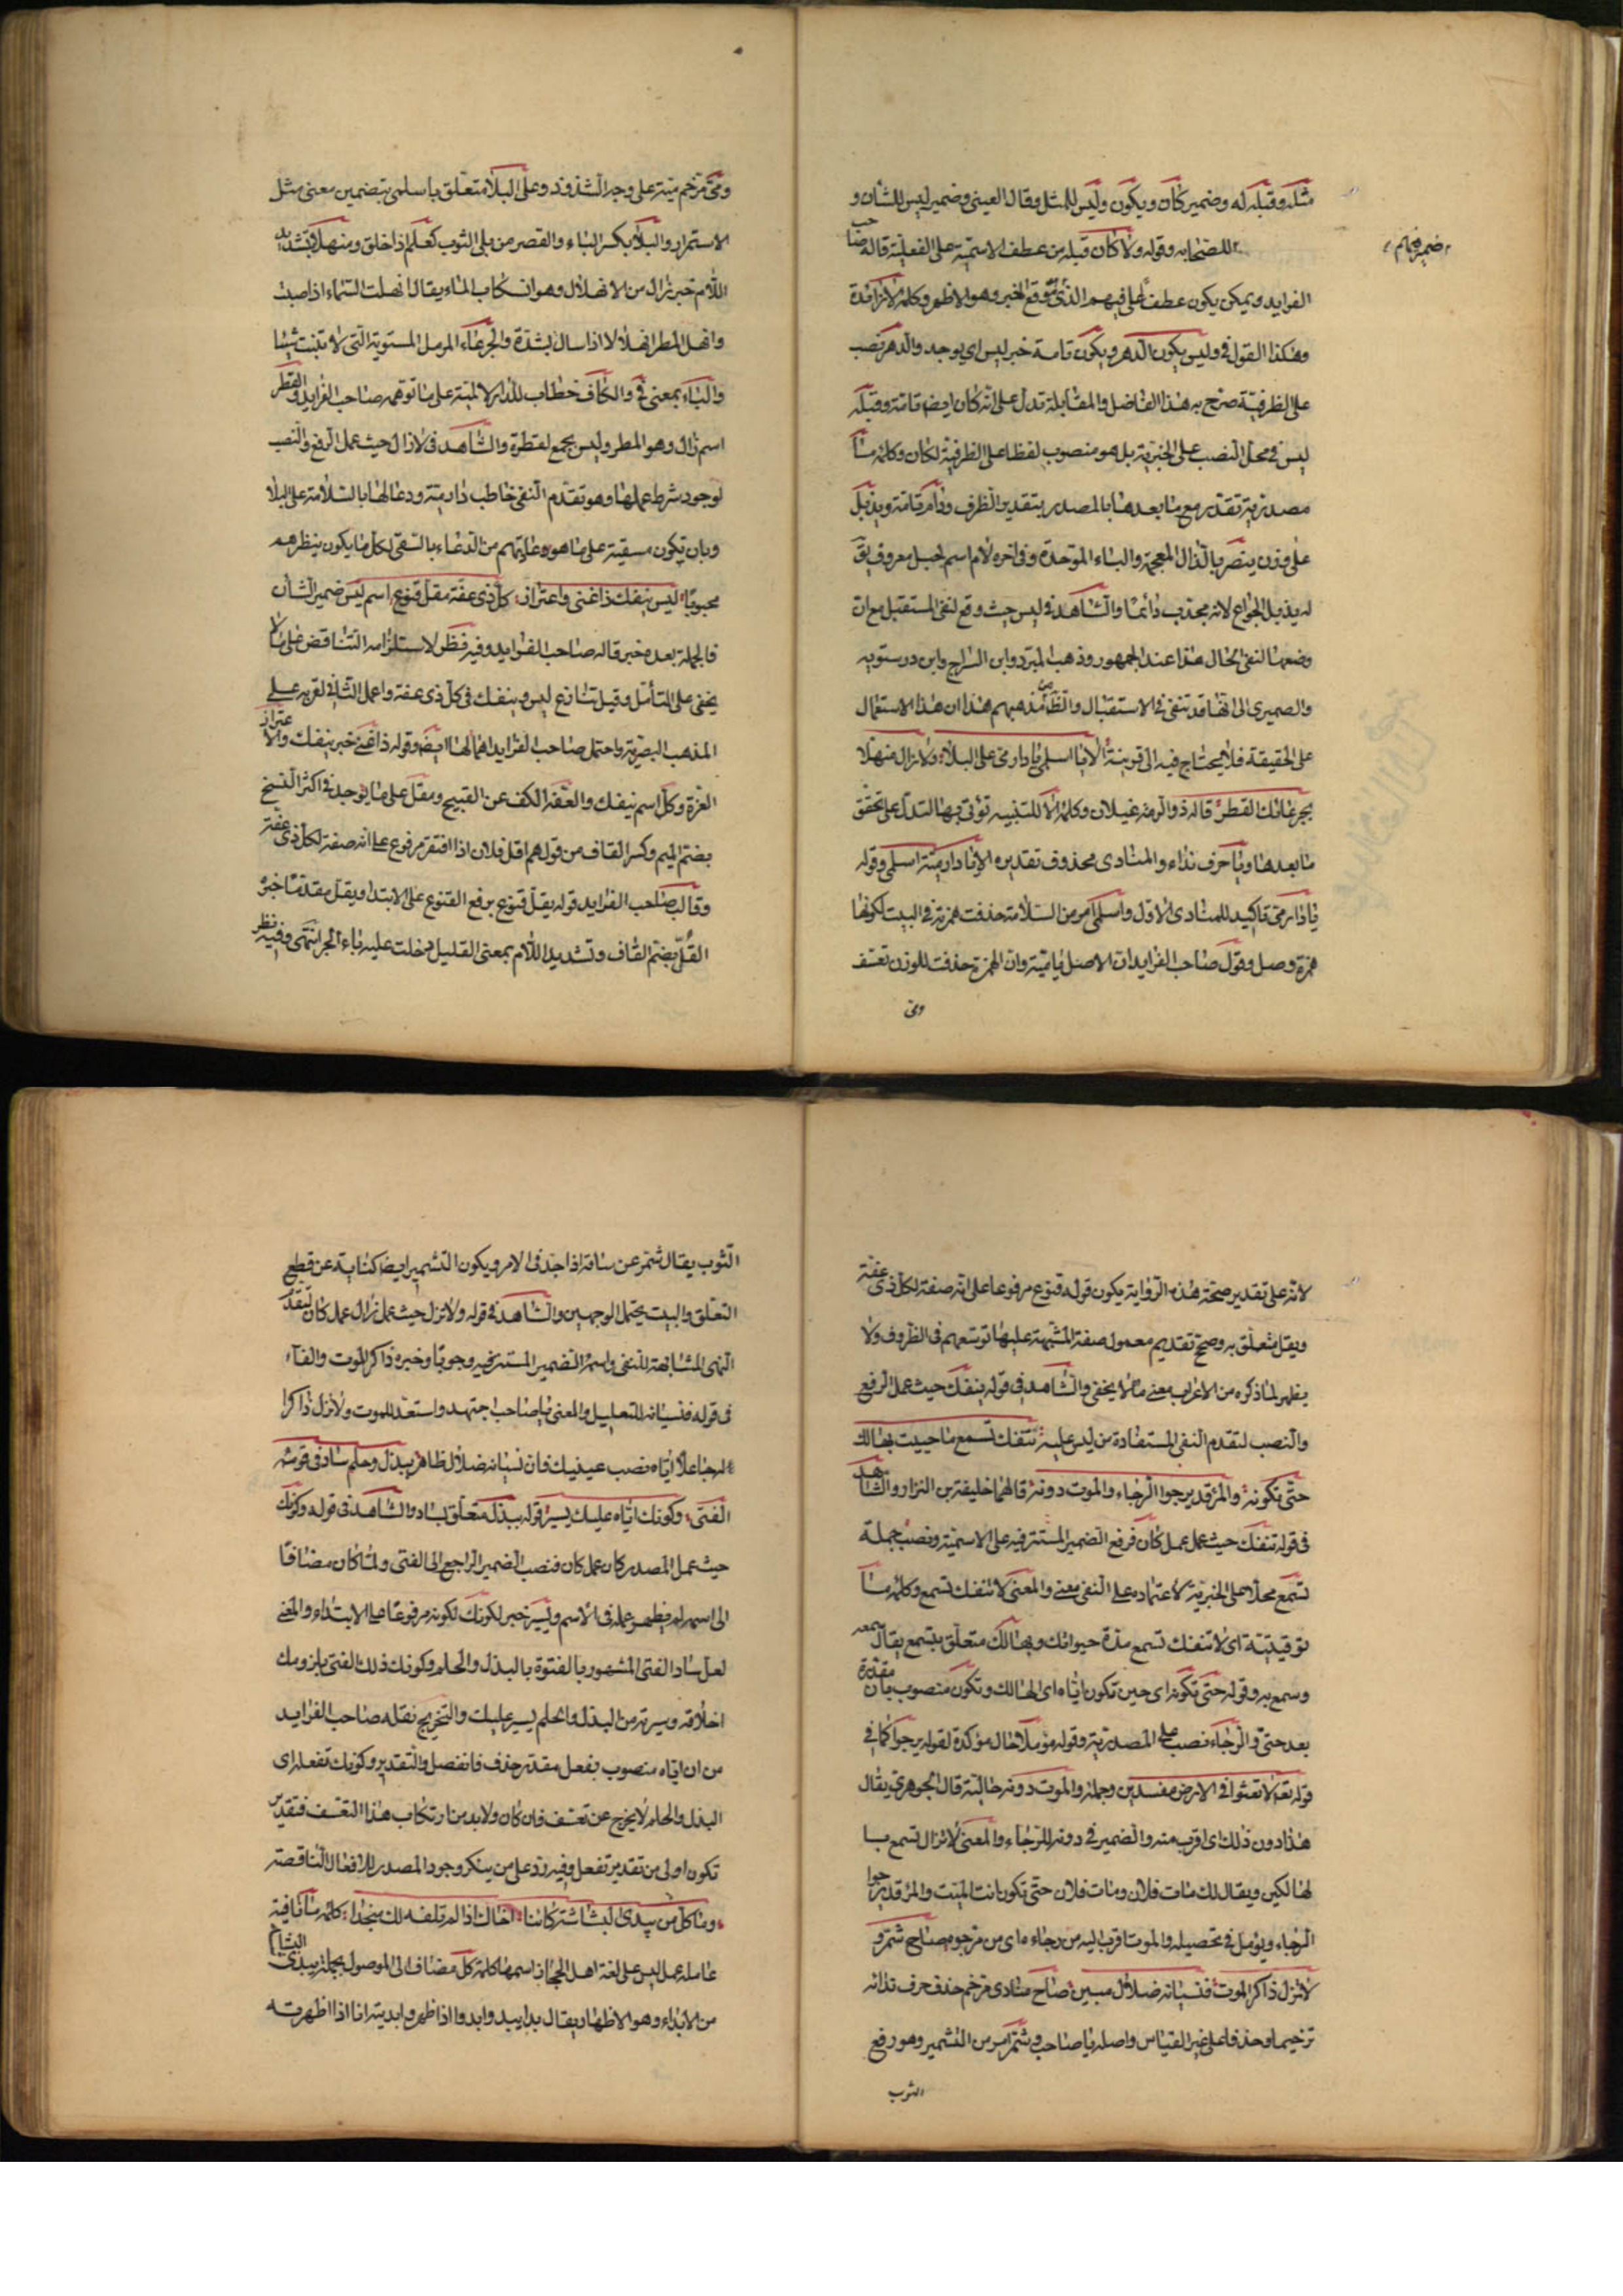 مثله وقبله له وضمير كان ويكون وليس للمثل وقال العيني وضمير ليس للشأن و
للصحابه وقوله ولا كان قبله من عطف الاسمية على الفعلية قاله صاحب
ضمير فيهم
الفرايد ويمكن يكون عطفا على فيهم الذي موقع الخبر وهو الاظهر وكلمة لا زائدة
وهكذا القول في وليس يكون الدهر ويكون تامة خبر ليس اي يوجد والدهر نصب
على الظرفية صرح به هذا الفاضل والمقابلة تدل على انه كان ايضا تامة وقبله
ليس في محل النصب على الخبرية بل هو منصوب لفظا على الظرفية لكان وكلمة ما
مصدرية تقدير مع ما بعدها بالمصدر بتقدير الظرف ودام تامة ويذبل
على وزن ينصر بالذال المعجمة والباء الموحدة وفي اخره لام اسم لجبل معروف يق
له يذبل الجواع لانه مجذب دائما والشاهد في ليس حيث وقع لنفي المستقبل مع ان
وضعها لنفي الحال هذا عند الجمهور وذهب المبرد وابن السراج وابن درستويه
والصميرى الى انها قد تنفي في الاستقبال والظ من مذهبهم هذا ان هذا الاستعمال
على الحقيقة فلا يحتاج فيه الى قرينة الا يا اسلمي يا دار مي على البلا ولا زال منهلا
بجرعائك القطر قاله ذو الرمة غيلان وكلمة الا للتنبيه تؤتى بها لتدل على تحقق
ما بعدها ويا حرف نداء والمنادى محذوف تقديره الا يا دار مية اسلمى وقوله
يا دار مي تاكيد للمنادى الاول واسلمى امر من السلامة حذفت همزته في البيت لكونها
همزة وصل وقول صاحب الفرايد ان الاصل يا مية وان الهمزة حذفت للوزن تعسف
ومي
ومي مرخم مية على وجه الشذوذ وعلى البلا متعلق باسلمى بتضمين معنى مثل
الاستمرار والبلا بكسر الباء والقصر من بلي الثوب كعلم اذا خلق ومنهلا بتشديد
اللام خبر زال من الانهلال وهو انسكاب الماء يقال انهلت السماء اذا صبت
وانهل المطر انهلالا اذا سال بشدة والجرعاء الرمل المستوية التي لا تنبت شيئا
والباء بمعنى في والكاف خطاب للدار لا لمية على ما توهمه صاحب الفرايد والقطر
اسم زال وهو المطر وليس بجمع لقطرة والشاهد في لا زال حيث عمل الرفع والنصب
لوجود شرط عملها وهو تقدم النفي خاطب دار مية ودعا لها بالسلامة على البلا
وبان تكون مسقية على ما هو دعائهم من الدعاء بالسقي لكل ما يكون بنظرهم
محبوبا ليس ينفك ذا غنى واعتزاز كل ذى عفة مقل قنوع اسم ليس ضمير الشأن
فالجملة بعده خبر قاله صاحب الفرايد وفيه نظر لاستلزامه التناقض على ما لا
يخفى على المتأمل وقيل تنازع ليس وينفك في كل ذى عفة واعمل الثاني لقربه على
المذهب البصرية واحتمل صاحب الفرايد اهمالها ايضا وقوله ذا غنى خبر ينفك والاعتزاز
العزة وكل اسم ينفك والعفة الكف عن القبيح ومقل على ما يوجد في اكثر النسخ
بضم الميم وكسر القاف من قولهم اقل فلان اذا افتقر مرفوع على انه صفة لكل ذى عفة
وقال صاحب الفرايد قوله بقل قنوع برفع القنوع على الابتداء وبقل مقدما خبره
القل بضم القاف وتشديد اللام بمعنى القليل دخلت عليه باء الجر انتهى وفيه نظر
لانه على تقدير صحة هذه الرواية يكون قوله قنوع مرفوعا على انه صفة لكل ذى عفة
وبقل متعلق به وصح تقديم معمول صفة المشبهة عليها توسعهم في الظروف ولا
يظهر لما ذكره من الاعراب معنى ما لا يخفى والشاهد في قوله ينفك حيث عمل الرفع
والنصب لتقدم النفي المستفادة من ليس عليه تنفك تسمع ما حييت بهالك
حتى تكونه والمرء قد يرجوا الرجاء والموت دونه قالهما خليفة بن النزار والشاهد
في قوله تنفك حيث عمل عمل كان فرفع الضمير المستتر فيه على الاسمية ونصب جملة
تسمع محلا على الخبرية لاعتماده على النفي معنى والمعنى لا تنفك تسمع وكلمة ما
توقيتية اى لا تنفك تسمع مدة حيواتك وبهالك متعلق بتسمع يقال سمعه
وسمع به وقوله حتى تكونه اى حين تكون اياه اى الهالك وتكون منصوب بان مقدرة
بعد حتى والرجاء نصب على المصدرية وقوله مؤملا حال مؤكدة لقوله يرجوا كما في
قوله تعه لا تعثوا في الارض مفسدين وجملة والموت دونه حالية قال الجوهري يقال
هذا دون ذلك اى اقرب منه والضمير في دونه للرجاء والمعنى لا تزال تسمع يا
لهالكين ويقال لك مات فلان ومات فلان حتى تكون انت الميت والمرء قد يرجوا
الرجاء ويؤمل في تحصيله والموت اقرب اليه من رجاءه اى من مرجوه صاح شمر و
لا تزل ذاكر الموت فنسيانه ضلال مبين صاح منادى مرخم حذف حرف ندائه
ترخيما وحذفا على غير القياس واصله يا صاحب وشمر امر من التشمير وهو رفع
الثوب
الثوب يقال شمر عن ساقه اذا جد في الامر ويكون التشمير ايضا كناية عن قطع
التعلق والبيت يحتمل الوجهين والشاهد في قوله ولا تزل حيث عمل زال عمل كان لتقدم
النهى المشابهة للنفي واسمه الضمير المستتر فيه وجوبا وخبره ذاكر الموت والفاء
في قوله فنسيانه للتعليل والمعنى يا صاحب اجتهد واستعد للموت ولا تزل ذاكرا
له جاعلا اياه نصب عينيك فان نسيانه ضلال ظاهر ببذل وحلم ساد في قومه
الفتى وكونك اياه عليك يسير قوله ببذل متعلق بساد والشاهد في قوله وكونك
حيث عمل المصدر كان عمل كان فنصب الضمير الراجع الى الفتى ولما كان مضافا
الى اسمه لم يظهر عمله في الاسم ويسير خبر لكونك لكونه مرفوعا على الابتداء والمعنى
لعل ساد الفتى المشهور بالفتوة بالبذل والحلم وكونك ذلك الفتى بلزومك
اخلاقه وسيرته من البذل والحلم يسير عليك والتخريج نقله صاحب الفرايد
من ان اياه منصوب بفعل مقدر حذف فانفصل والتقدير وكونك تفعله اى
البذل والحلم لا يخرج عن تعسف فان كان ولابد من ارتكاب هذا التعسف فتقدير
تكون اولى من تقدير تفعل وفيه رد على من ينكر وجود المصدر للافعال الناقصة
وما كل من يبدى البشاشة كائنا اخاك اذا لم تلفه لك منجدا كلمة ما نافية
عاملة عمل ليس على لغة اهل الحجاز اسمها كلمة كل مضاف الى الموصول بجملة يبدى البشاشة
من الابداء وهو الاظهار يقال بدا يبدوا بدوا اذا ظهر وابديته انا اذا اظهرته